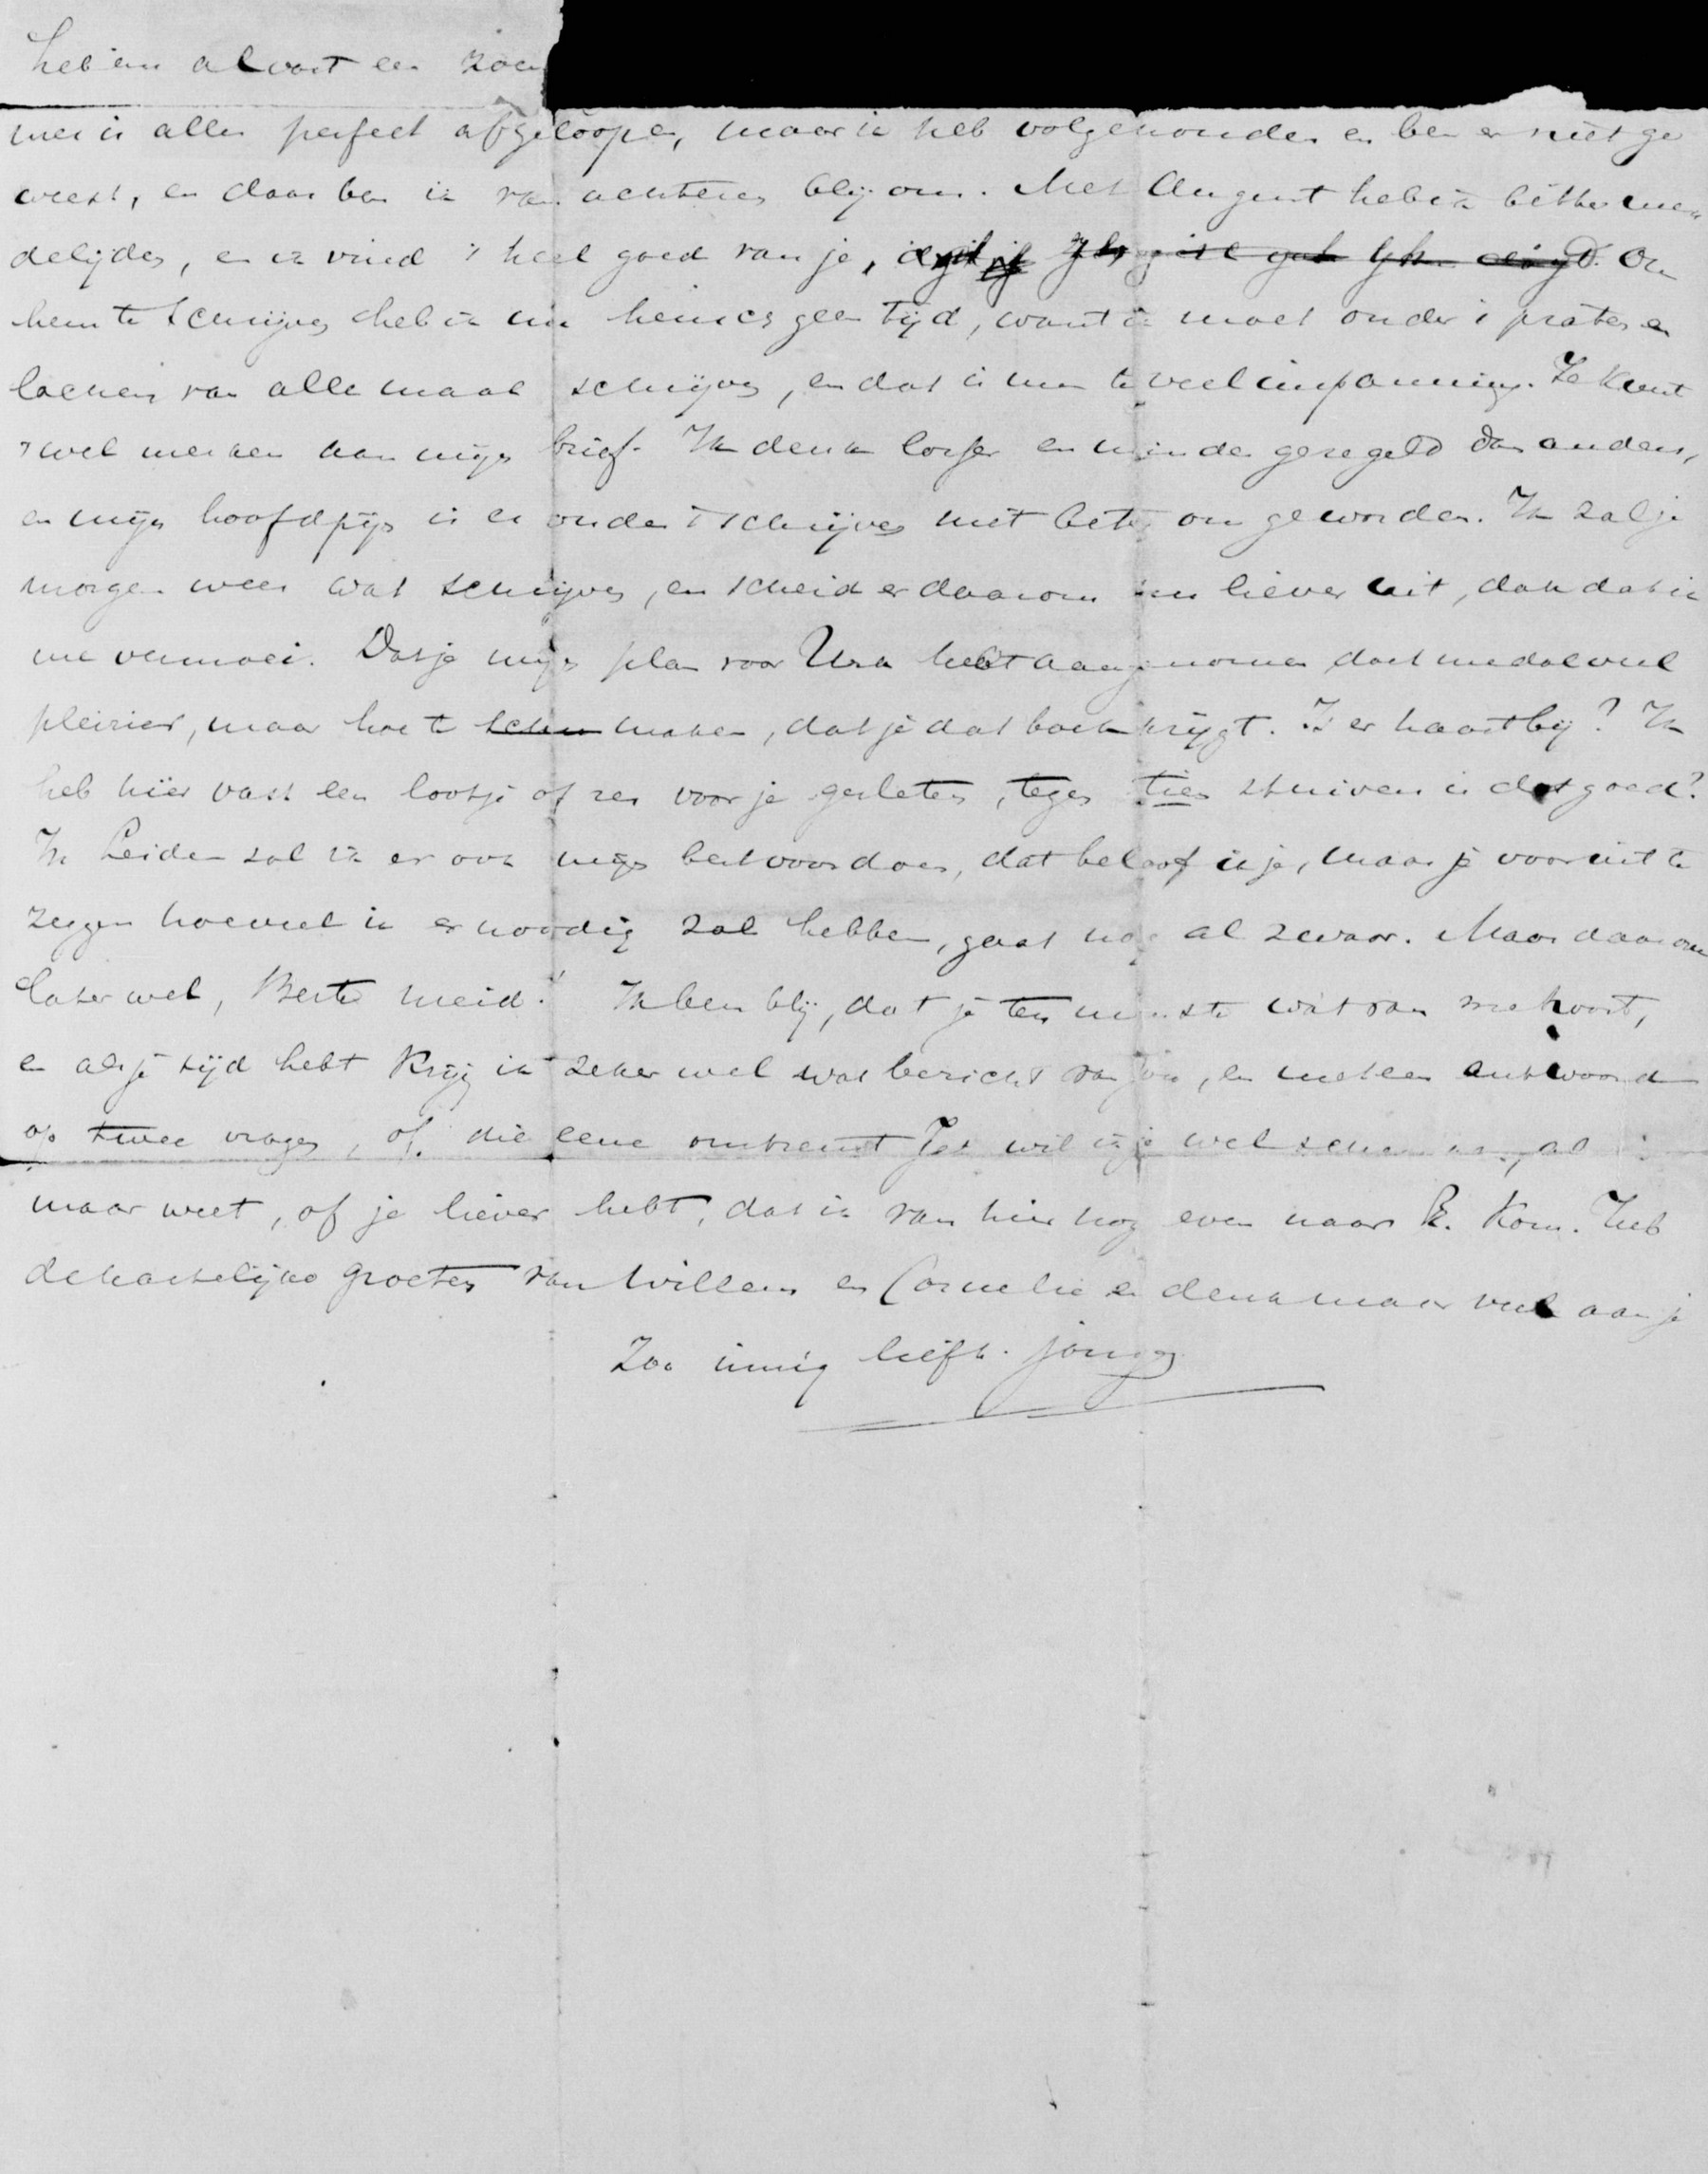 heb een alvast een zoen
mee is alles perfect afgeloopen, maar ik heb volgehouden en ben er niet ge
weest, en daar ben ik van achteren blij om. Met August heb ik bitter mee
delijden, en ik vind 't heel goed van je, Om
hem te schrijven heb ik nu heusch geen tijd, want ik moet onder 't praten en
lachen van allemaal schrijven, en dat is me te veel inspanning. Je kunt
't wel merken aan mijn brief. Ik denk losser en minder geregeld dan anders,
en mijn hoofdpijn is er onder 't schrijven niet beter om geworden. Ik zal je
morgen weer wat schrijven, en scheid er daarom nu liever uit, dan dat ik
me vermoei. Dat je mijn plan voor hebt aangenomen doet me dol veel
pleizier, maar hoe te maken, dat je dat boek krijgt. Is er haast bij? Ik
heb hier vast een lootje of zes voor je gesleten, tegen tien stuivers is dat goed?
In Leiden zal ik er ook mijn best voor doen, dat beloof ik je, maar je vooruit te
zeggen hoeveel ik er noodig zal hebben, gaat nog al zwaar. Maar daarom
later wel, Beste meid! Ik ben blij, dat je ten minste wat van me hoort,
en als je tijd hebt krijg ik zeker wel wat bericht van jou, en meteen antwoord
op twee vragen, of die eene omtrent Jet wil ik je wel schenken, als ik
maar weet, of je liever hebt, dat ik van hier nog even naar R. kom. Heb
de hartelijke groeten van Willem en Cornelie en denk maar veel aan je
Zoo innig liefh. jongen